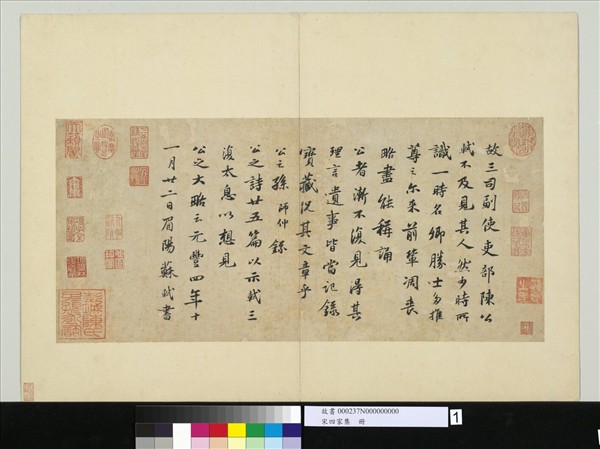 故三司副使吏部陳公
軾不及見其人然少時所
識一時名卿勝士多推
尊之尒來前輩凋喪
略盡能稱誦
公者漸不復見得其
理言遺事皆當記錄
寶藏況其文章乎
公之孫師仲錄
公之詩廿五篇以示軾三
復太息以想見
公之大略云元豐四年十
一月廿二日眉陽蘇軾書
故書 000237N000000000
宋四家集 冊
1